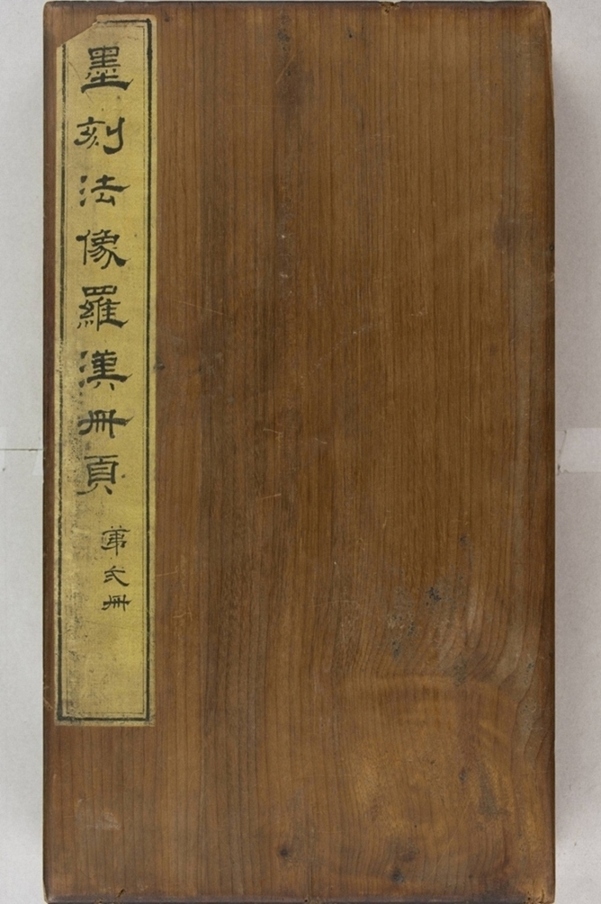 墨刻法像羅漢冊頁
第弍冊